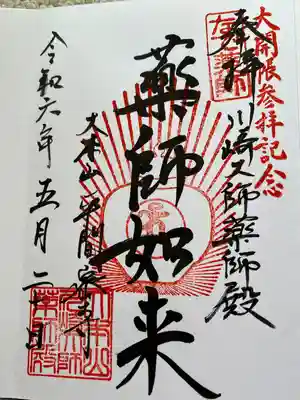 大開帳参拝記念
奉拝
川崎大師薬師殿
薬師如来
大本山
平間寺
令和六年五月二十日